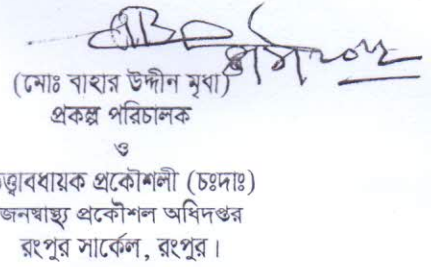 (মোঃ বাহার উদ্দীন মৃধা)
প্রকল্প পরিচালক
ও
ত্ত্বাবধায়ক প্রকৌশলী (চঃদাঃ)
জনস্বাস্থ্য প্রকৌশল অধিদপ্তর
রংপুর সার্কেল, রংপুর।